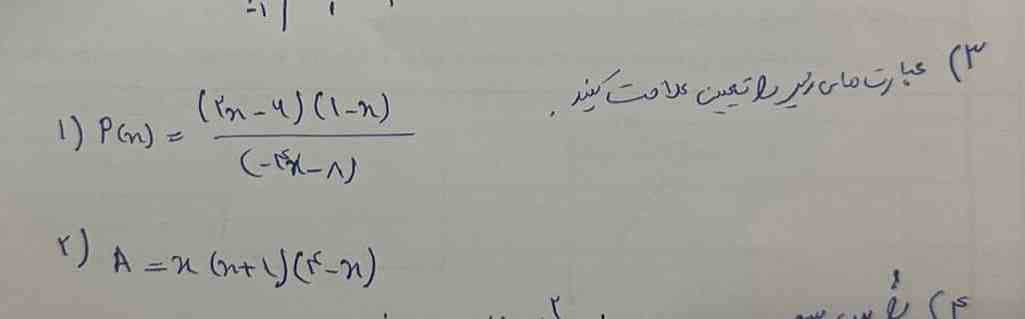 ۳) عبارت‌های زیر را تعیین علامت کنید.
۱) P(x) = (۲x-۶)(۱-x) / (-۴x-۸)
۲) A = x(x+۱)(۴-x)